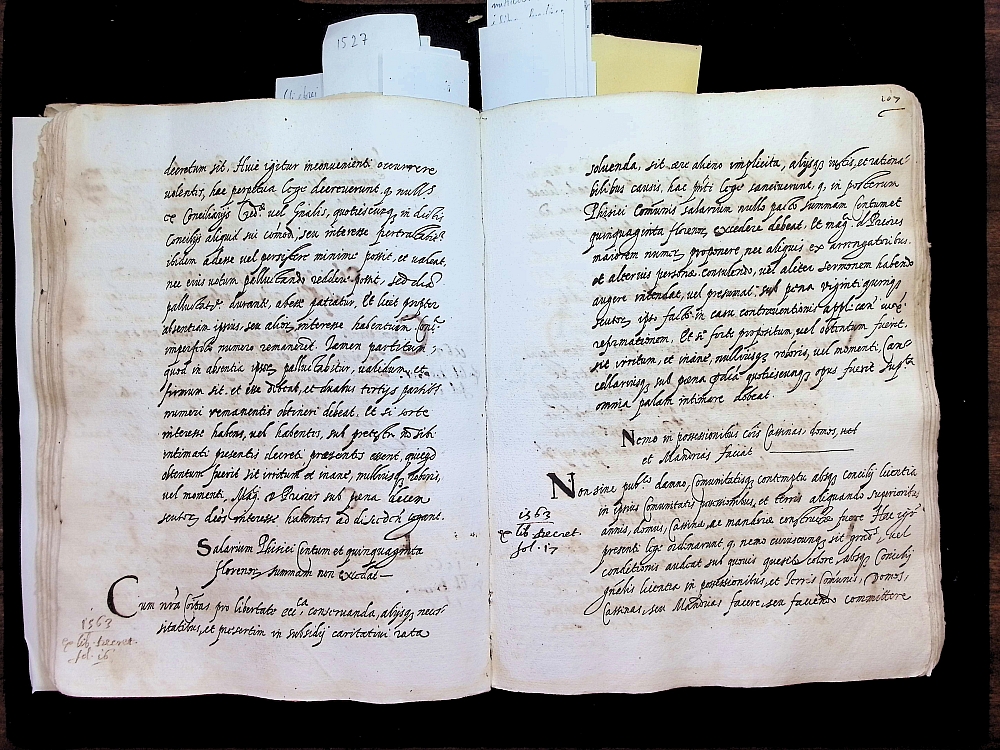 1527
decretum sit. Huic igitur inconvenienti occurrere
valentes, hac perpetua lege decreverunt, q nulli
ex Conciliarijs vel Gnalis, quotiescunq in dictis
Concilijs aliquid sui comodi, seu interesse
ibidem adesse vel persistere minime possit, et valeat,
nec eius votum pallutando reddere possit, sed
durante, abesse patiatur. Et licet propter
absentiam ipsius, seu alior interesse habentium
imperfecto numero remaneret. Tamen partitum,
quod in absentia ipsor palluctabitur, validum, et
firmum sit, et esse debeat, et duabus tertijs partibus
numeri remanentis obtineri debeat. Et si forte
interesse habens, vel habentes, sub pretextu nō sibi
intimati presentis decreti presentes essent, quicqd
obtentum fuerit sit irritum et inane, nulliusq roboris,
vel momenti. Mag. D Priores sub pena decem
scutor dcos interesse habentes ad discedēdū cogant.
Salarium Phisici Centum et quinquaginta
florenor summam non excedat
Cum nrā Cōitas pro libertate eccl.ca conservanda, alijsq neces
sitatibus, et presertim in subsidij caritativi rata
1563
ex lib. decret.
fol. 16
107
solvenda, sit aere alieno implicita, alijsq iustis, et rationa
bilibus causis, hac pñti lege sanciverunt, q, in posterum
Phisici Comunis salarium nullo pacto summam Centum et
quinquaginta florenor excedere debeat. Et mag. d. Priores
maiorem numq proponere nec aliquis ex arrengatoribus
et alterius personae consulendo, vel aliter sermonem habendo
augere intendat, vel presumat sub pena viginti quinq
scutor ipso facto in casu controventionis
reformationem. Et si forte propositum, vel obtentum fuerit,
sit irritum, et inane, nulliusq roboris, vel momenti, Can
cellariusq sub poena pdcā quotiescunq opus fuerit
omnia palam intimare debeat.
Nemo in possessionibus cōis Cassinas, domos, vel
et Mandrias faciat
Non sine pub.co damno, Comunitatisq contemptu absq Concilij licentia
in ipsius Comunitatis possessionibus, et terris aliquando superioribus
annis, domus, Cassinae, ac mandriae construtae fuere. Hac igir
presenti lege ordinarunt, q nemo cuiuscunq sit grad, vel
conditionis audeat sub quovis quesito colore absq Concilij
gnalis licentia in possessionibus, et terris Comunis, Domos,
Cassinas, seu Mandrias facere, seu faciendo committere
1563
ex lib. decret.
fol. 17